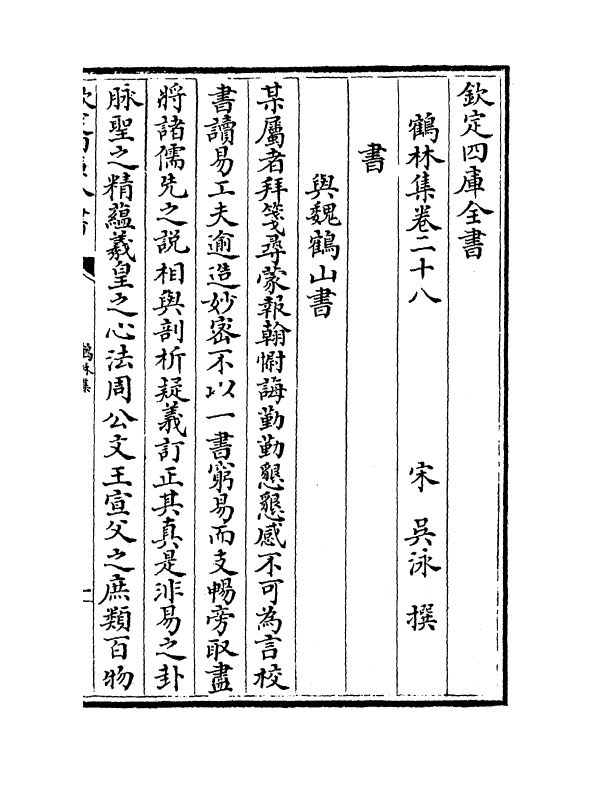 欽定四庫全書
鶴林集卷二十八
宋 吳泳 撰
書
與魏鶴山書
某屬者拜箋尋蒙報翰惻誨勤勤懇懇感不可為言校
書讀易工夫逾造妙密不以一書窮易而支暢旁取盡
將諸儒先之說相與剖析疑義訂正其真是非易之卦
脉聖之精蘊羲皇之心法周公文王宣父之庶類百物
鶴林集
一